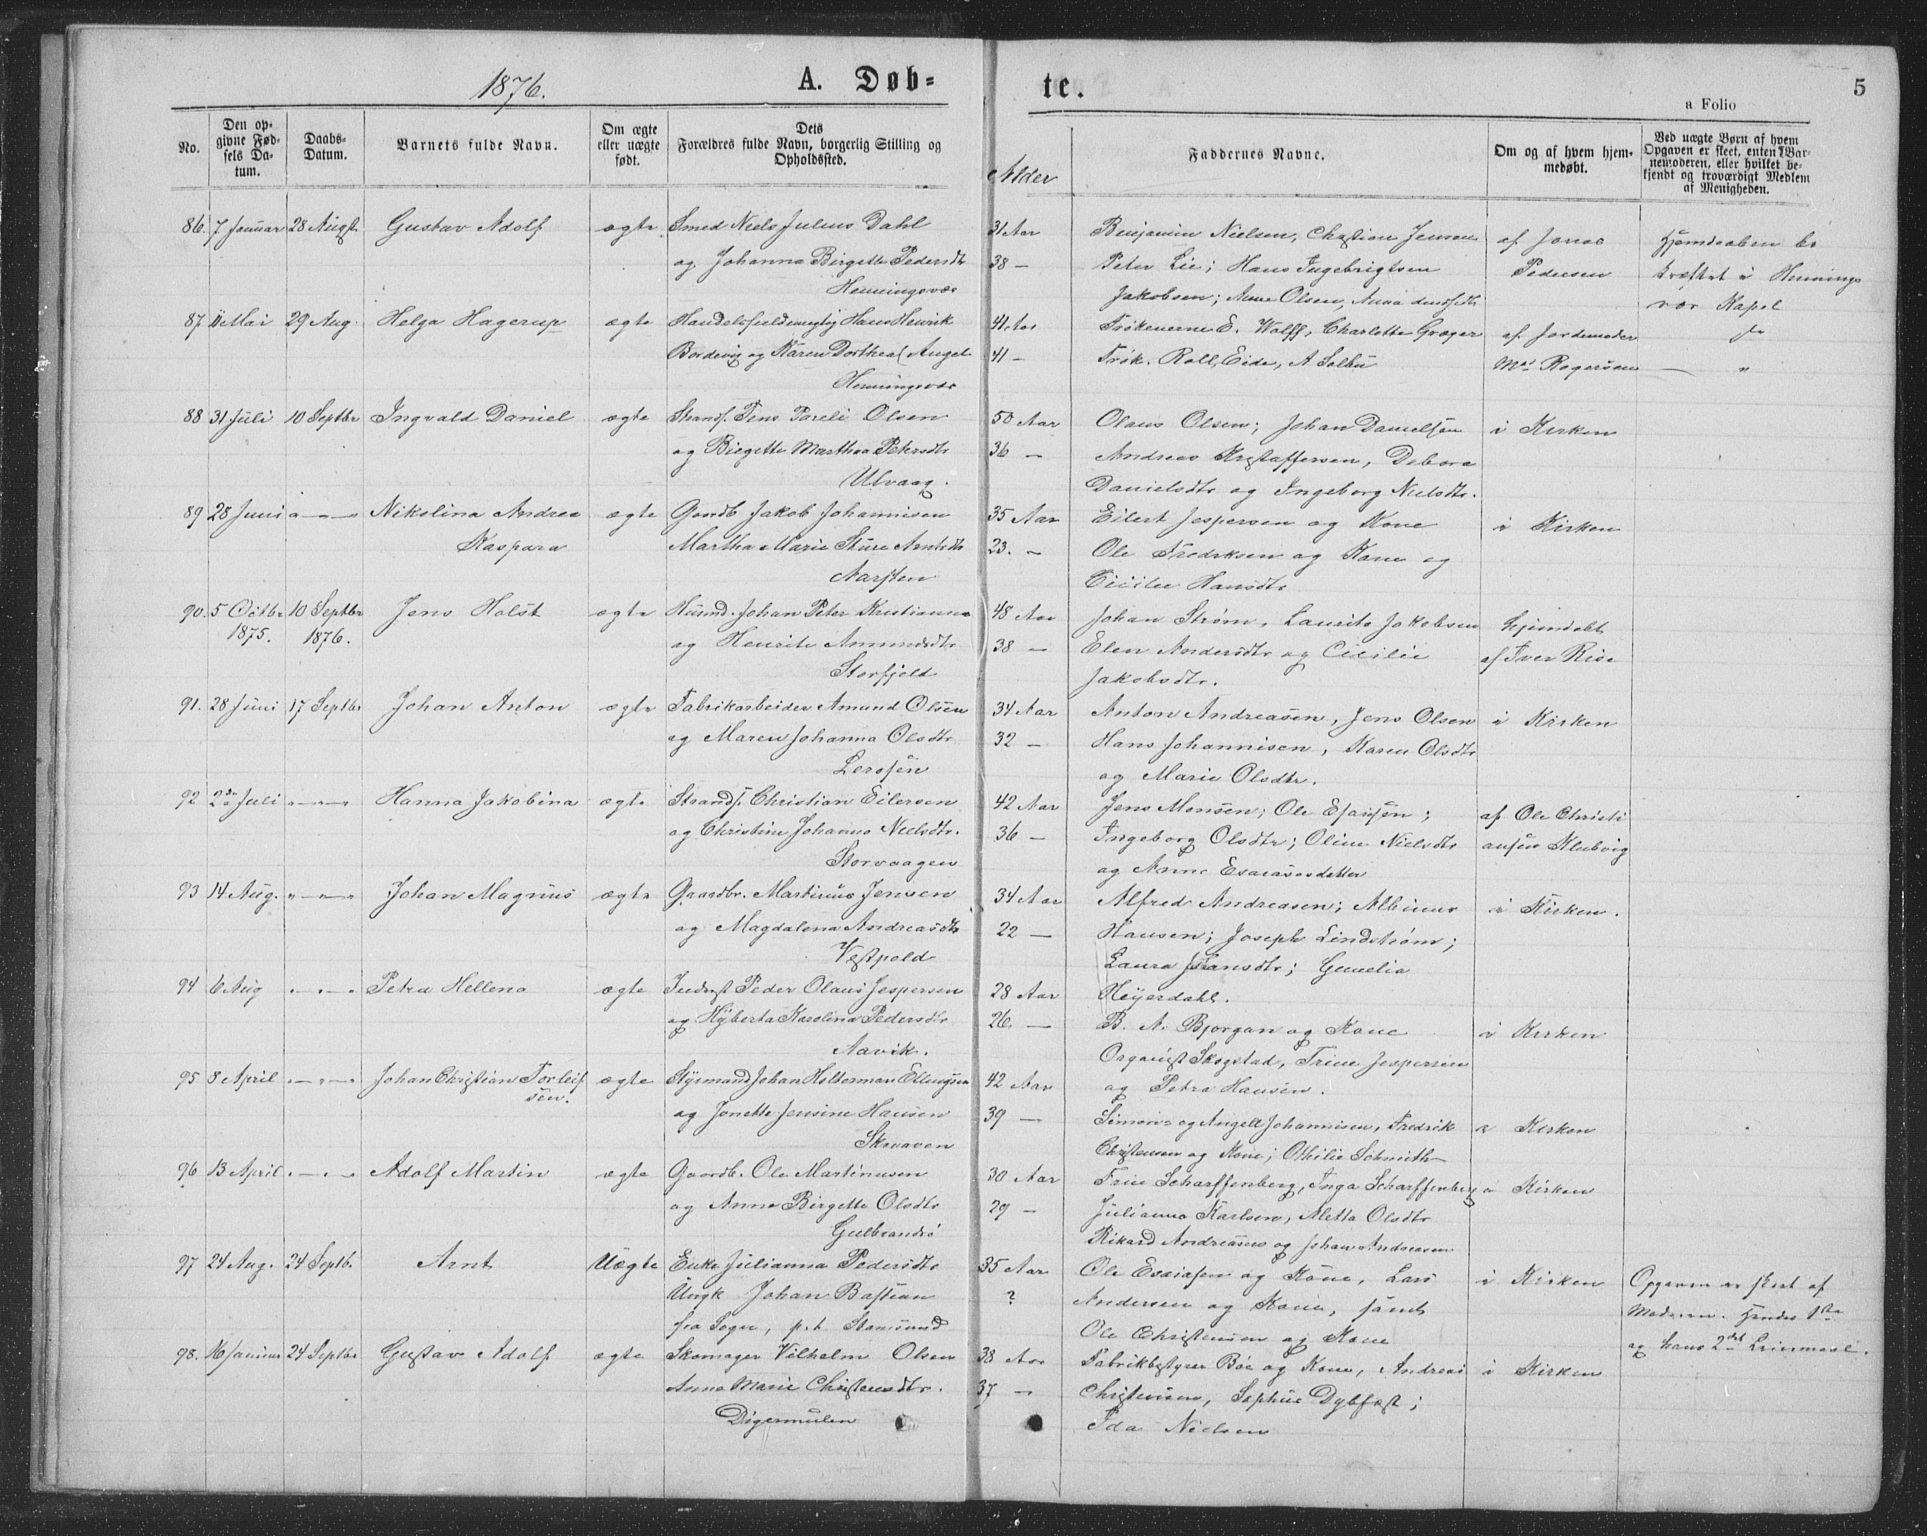 1876.
A. Døb=
te.
5
a Folio
No.
Den op-
givne Fød-
sels Da-
tum.
Daabs-
Datum.
Barnets fulde Navn.
Om ægte
eller uægte
født.
Dets
Forældres fulde Navn, borgerlig Stilling og
Opholdssted.
Alder
Faddernes Navne.
Om og af hvem hjem-
medøbt.
Ved uægte Børn af hvem
Opgaven er skeet, enten Bar-
nemoderen, eller hvilket be-
kjendt og troværdigt Medlem
af Menigheden.
86. 7 Januar 28 Augst. Gustav Adolf ægte Smed Niels Julius Dahl 31 Aar Benjamin Nielsen, Christian Jensen af Jonas Hjemdaaben be
og Johanna Birgette Pedersdtr 38 — Peter Lie; Hans Ingebrigtsen Pedersen kræftet i Hennings
Henningsvær Jakobsen; Anne Olsen, vær Kapel
87 11 Mai 29 Aug. Helga Hagerup ægte Handelsfuldmægtig Hans Henrik 41 Aar Frøkenerne E. Wolff, Charlotte Grøger af Jordemoder do
Bordevig og Karen Dorthea Angel 41 — Frøk. Roll, Eide, A Solbu M. Rogersen — "
Henningsvær
88 31 Juli 10 Septbr Ingvald Daniel ægte Strands. Jens Pareli Olsen 50 Aar Olaus Olsen; Johan Danielsen i Kirken
og Birgitte Marthea Petersdtr 36 — Andreas Kristoffersen, Debora
Ulvaag. Danielsdtr og Ingeborg Nielsdtr.
89 28 Juni " — " — " Nikolina Andrea ægte Gaardb. Jakob Johannisen 35 Aar Eilert Jespersen og Kone i Kirken
Kaspara Martha Marie Sture Arntsdtr 23. — Ole Fredriksen og Kone og
Aarsten Cicilie Hansdtr
90. 5 Octbr 10 Septbr Jens Holst ægte Husmd. Johan Peter Kristiansen 48 Aar Johan Strøm, Laurits Jakobsen hjemdøbt
1875. 1876. og Henrite Amundsdtr 38 — Elen Andersdtr og Cicilie af Iver Rise
Storfjeld Jakobsdtr.
91. 28 Juni 17 Septbr Johan Anton ægte Fabrikarbeider Amund Olsen 34 Aar Anton Andreasen, Jens Olsen i Kirken
og Maren Johanna Olsdtr 32 — Hans Johannisen, Karen Olsdtr
Lerosen og Marie Olsdtr.
92 2den Juli " — " — " Hanna Jakobina ægte Strands. Christian Eilersen 42 Aar Jens Monsen; Ole Esaisen; af Ole Christi
og Christine Johanna Nielsdtr. 36 — Ingeborg Olsdtr; Oline Nielsdtr ansen Klubvig
Storvaagen og Anne Esaiasdatter
93 14 Aug. " — " — " Johan Magnus ægte Gaardbr. Martinus Jensen 34 Aar Alfred Andreasen; Albinus i Kirken.
og Magdalena Andreasdtr 22 — Hansen; Joseph Lindstrøm;
Vestpold Laura Johansdtr; Gunelia
94 6 Aug " — " — " Petra Hellena ægte Inderst Peder Olaus Jespersen 28 Aar Heyerdahl.
og Hyberta Karolina Pedersdtr 26. — B. A. Bjorgan og Kone i Kirken
Aavik. Organist Skogstad, Trine Jespersen
95 8 April " — " — " Johan Christian Torleif ægte Styrmand Johan Holterman Ellingsen 42 Aar og Petra Hansen.
sen. og Jonette Jensine Hansen 39 — Simons og Angell Johannisen, Fredrik i Kirken
Skraaven Christensen og Kone; Othilie Schmith
96 13 April " — " — " Adolf Martin ægte Gaardb. Ole Martinusen 30 Aar Trine Scharffenberg, Inga Scharffenberg i Kirken
og Anne Birgette Olsdtr 29 — Julianna Karlsen, Aletta Olsdtr
Gulbrandsø Rikard Andreasen og Johan Andreasen
97 24 Aug. 24 Septb. Arnt Uægte Enke Julianna Pedersdtr 35 Aar Ole Esaiasen og Kone, Lars i Kirken Opgaven er skeet af
Ungk Johan Bastian ? Andersen og Kone, samt Moderen. Hendes 1ste
fra Sogn, p.t. Stamsund Ole Christensen og Kone og hans 2det Leiermaal.
98. 16 Januar 24 Septbr Gustav Adolf ægte Skomager Vilhelm Olsen 38 Aar Fabrikbestyrer Bøe og Kone, Andreas i Kirken
Anne Marie Christensdtr. 37 — Christensen, Sophus Dybfest;
Digermulen Ida Nielsen